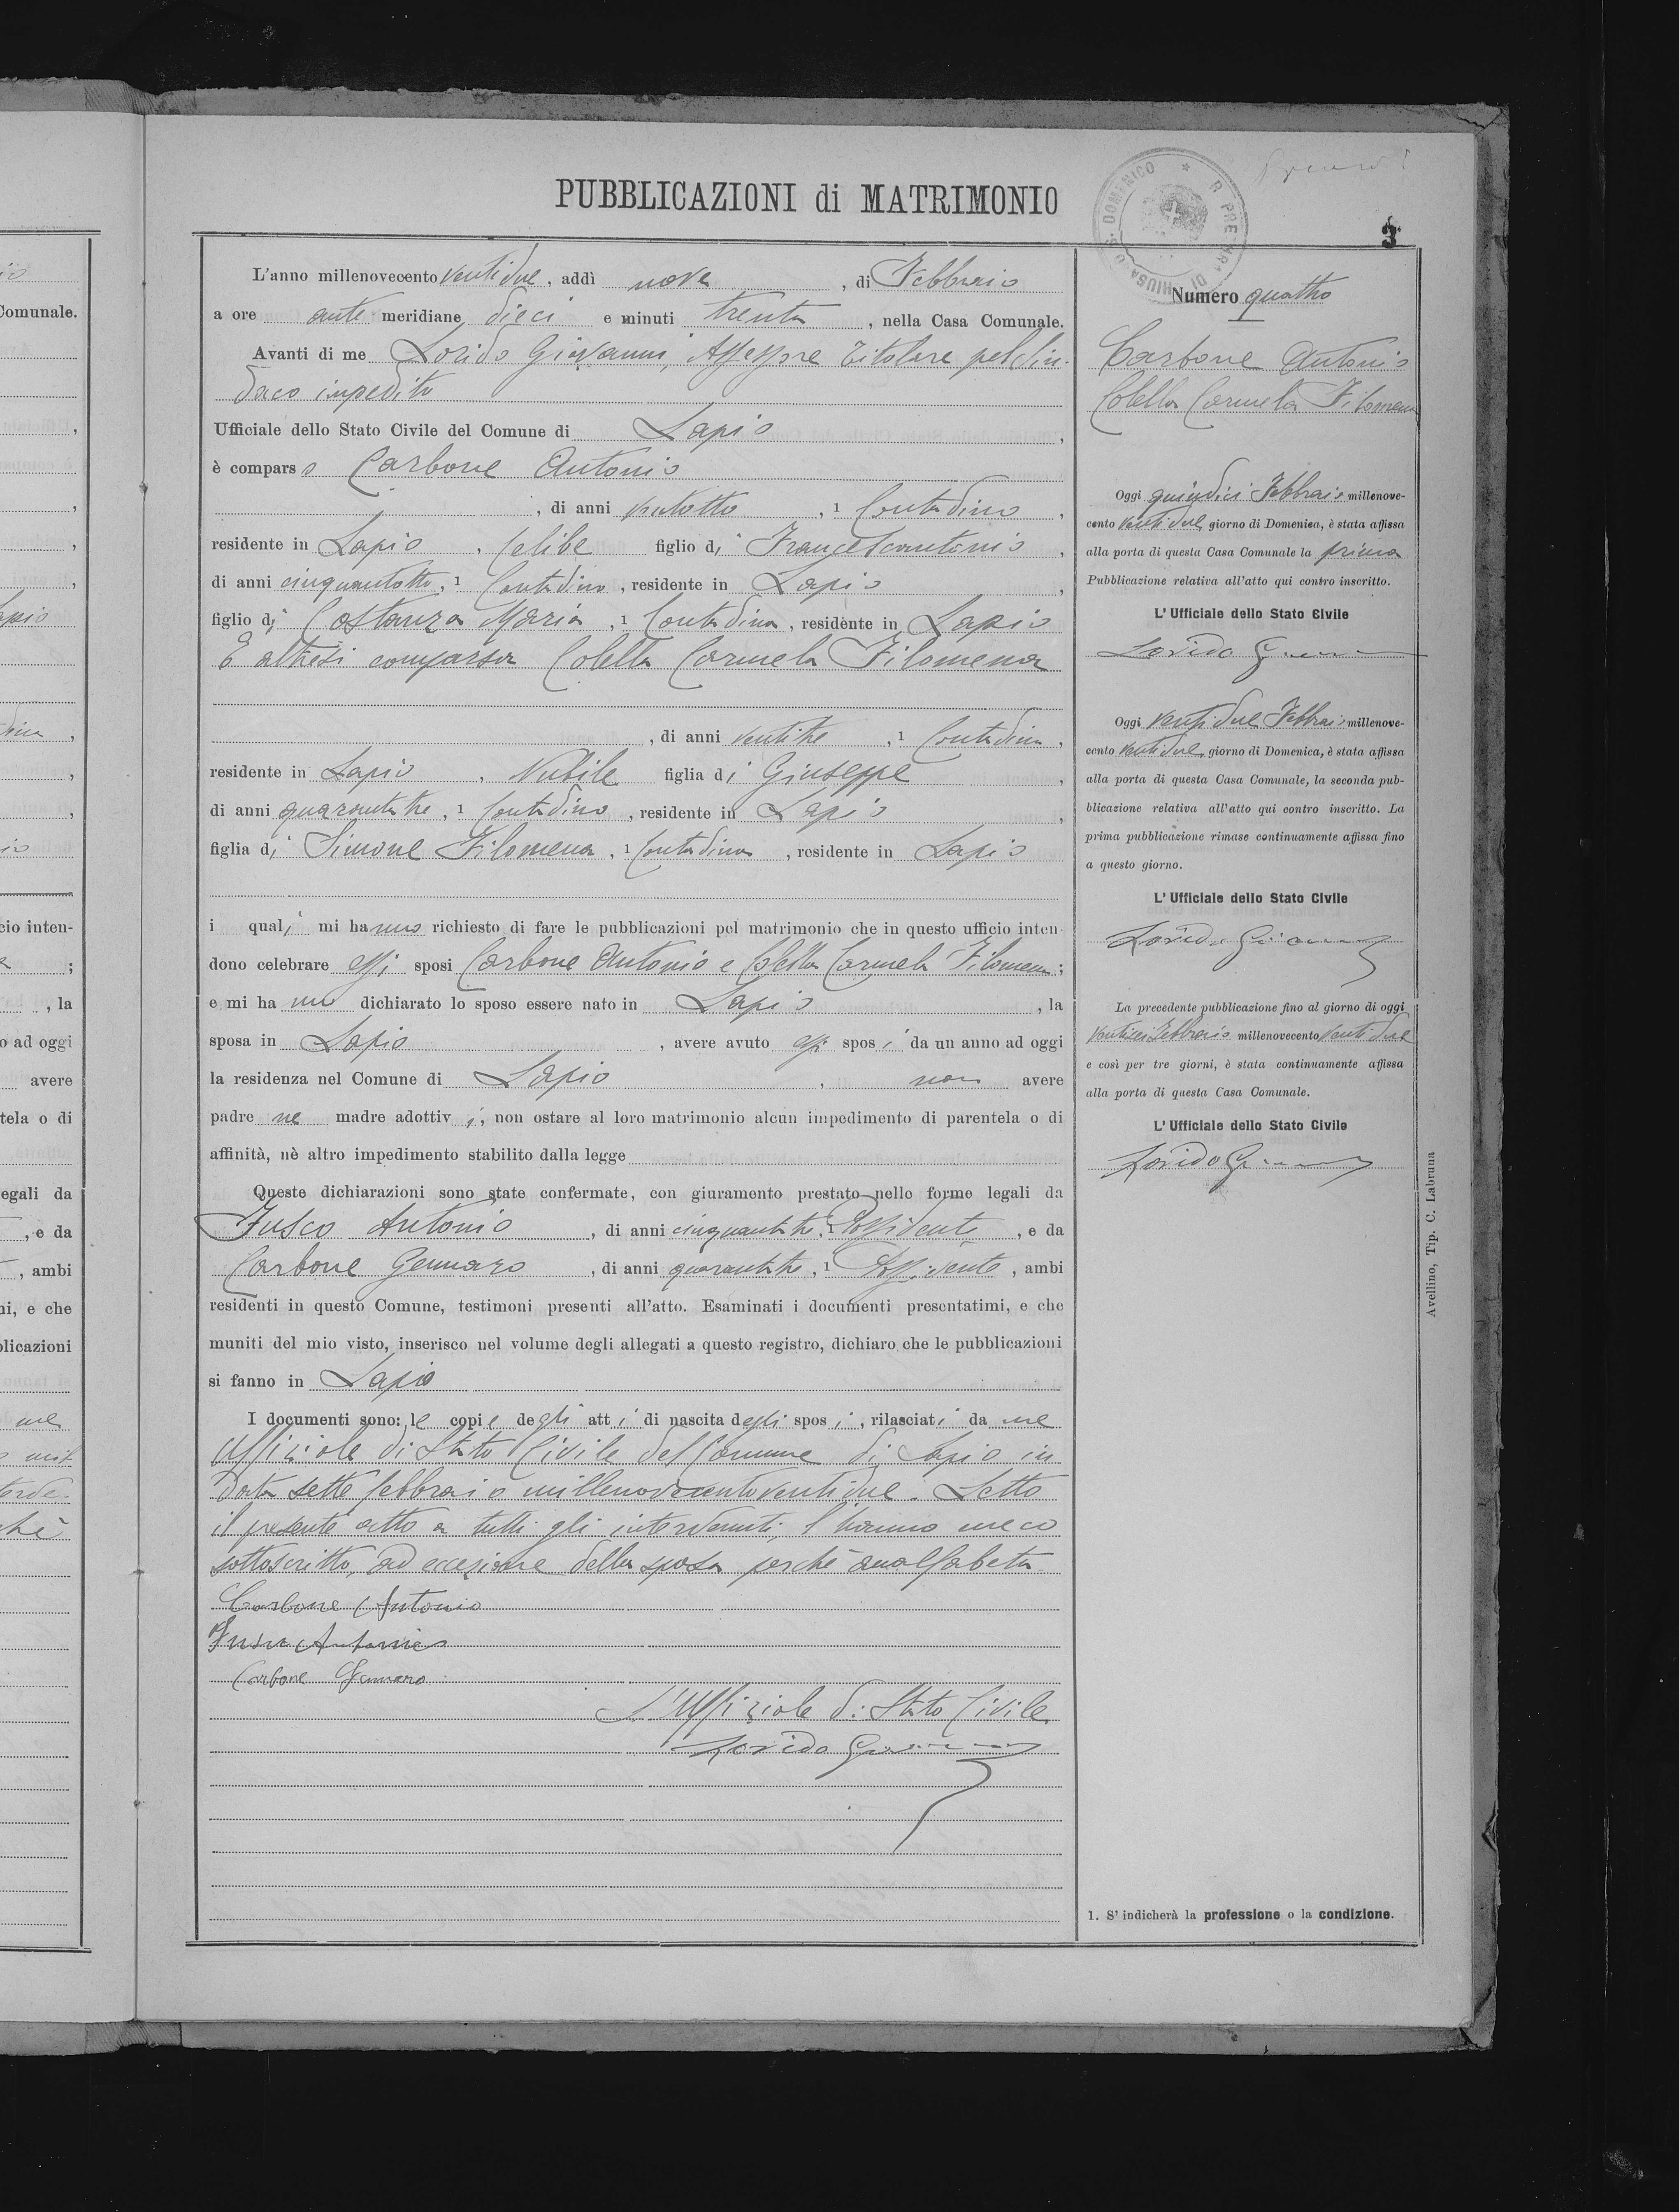 PUBBLICAZIONI di MATRIMONIO
3
L'anno millenovecento ventidue, addì nove, di Febbraio
a ore anti meridiane dieci e minuti trenta, nella Casa Comunale.
Avanti di me Lorido Giovanni, Assessore Titolare pel Sin-
daco impedito
Ufficiale dello Stato Civile del Comune di Lapio,
è comparso Carbone Antonio
, di anni ventotto, 1 Contadino,
residente in Lapio, Celibe figlio di Francescantonio,
di anni cinquantotto, 1 Contadino, residente in Lapio,
figlio di Costanza Maria, 1 Contadina, residente in Lapio
È altresì comparsa Colella Carmela Filomena
, di anni ventitre, 1 Contadina,
residente in Lapio, Nubile figlia di Giuseppe,
di anni quarantatre, 1 Contadino, residente in Lapio,
figlia di Simone Filomena, 1 Contadina, residente in Lapio
i quali mi hanno richiesto di fare le pubblicazioni pel matrimonio che in questo ufficio inten-
dono celebrare essi sposi Carbone Antonio e Colella Carmela Filomena;
e mi hanno dichiarato lo sposo essere nato in Lapio, la
sposa in Lapio, avere avuto essi sposi da un anno ad oggi
la residenza nel Comune di Lapio, non avere
padre ne madre adottivi, non ostare al loro matrimonio alcun impedimento di parentela o di
affinità, nè altro impedimento stabilito dalla legge
Queste dichiarazioni sono state confermate, con giuramento prestato nelle forme legali da
Fusco Antonio, di anni cinquantatre, 1 Possidente, e da
Carbone Gennaro, di anni quarantatre, 1 Possidente, ambi
residenti in questo Comune, testimoni presenti all'atto. Esaminati i documenti presentatimi, e che
muniti del mio visto, inserisco nel volume degli allegati a questo registro, dichiaro che le pubblicazioni
si fanno in Lapio
I documenti sono: le copie degli atti di nascita degli sposi, rilasciati da me
Uffiziale di Stato Civile del Comune di Lapio in
data sette febbraio millenovecentoventidue. Letto
il presente atto a tutti gli intervenuti, l'hanno meco
sottoscritto, ad eccezione della sposa perchè analfabeta.
Carbone Antonio
Fusco Antonio
Carbone Gennaro
L'Uffiziale di Stato Civile
Lorido Giovanni
Numero quattro
Carbone Antonio
Colella Carmela Filomena
Oggi quindici Febbraio millenove-
cento ventidue giorno di Domenica, è stata affissa
alla porta di questa Casa Comunale la prima
Pubblicazione relativa all'atto qui contro inscritto.
L'Ufficiale dello Stato Civile
Lorido Giovanni
Oggi ventidue Febbraio millenove-
cento ventidue giorno di Domenica, è stata affissa
alla porta di questa Casa Comunale, la seconda pub-
blicazione relativa all'atto qui contro inscritto. La
prima pubblicazione rimase continuamente affissa fino
a questo giorno.
L'Ufficiale dello Stato Civile
Lorido Giovanni
La precedente pubblicazione fino al giorno di oggi
ventisei Febbraio millenovecento ventidue
e così per tre giorni, è stata continuamente affissa
alla porta di questa Casa Comunale.
L'Ufficiale dello Stato Civile
Lorido Giovanni
1. S'indicherà la professione o la condizione.
Avellino, Tip. C. Labruna